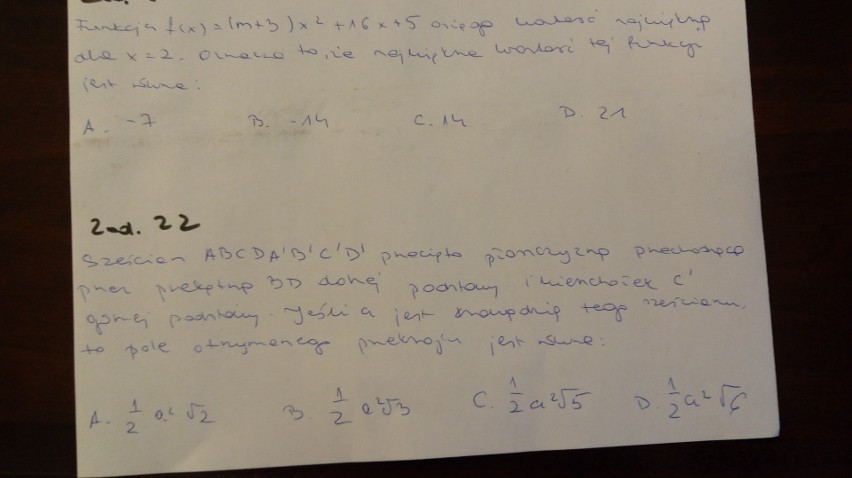 Funkcja f(x)=(m+3)x²+16x+5 osiąga wartość największą
dla x=2. Oznacza to, że największa wartość tej funkcji
jest równa:
A. -7 B. -14 C. 14 D. 21
Zad. 22
Sześcian ABCDA'B'C'D' przecięto płaszczyzną przechodzącą
przez przekątną BD dolnej podstawy i wierzchołek C'
górnej podstawy. Jeśli a jest krawędzią tego sześcianu,
to pole otrzymanego przekroju jest równe:
A. 1/2 a² √2 B. 1/2 a²√3 C. 1/2 a²√5 D. 1/2 a² √6